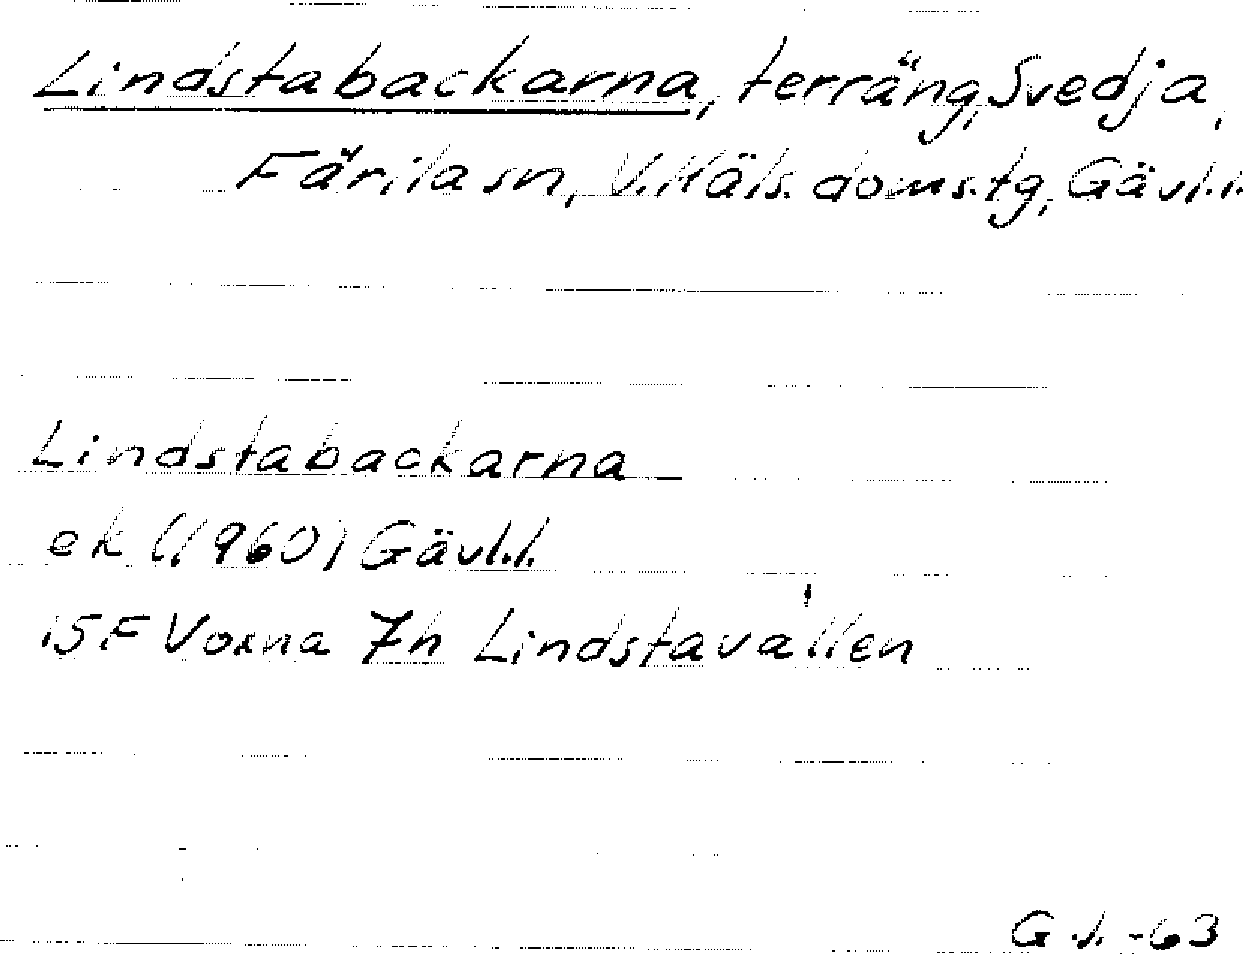 Lindstabackarna, terräng, Svedja,
Färila sn, V. Häls. doms.tg, Gävl.l.
Lindstabackarna
ek (1960) Gävl.l.
15F Voxna 7h Lindstavallen
G.l. -63